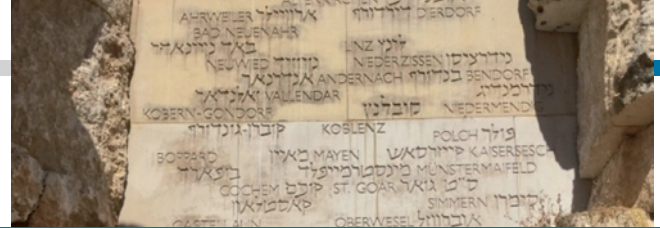 AHRWEILER ארוויילר דירדורף DIERDORF
BAD NEUENAHR
באד נויינאהר LINZ לינץ נידרציסן NIEDERZISSEN
NEUWIED נווויד
אנדרנאך ANDERNACH בנדורף BENDORF
ואלנדאר VALLENDAR נידרמנדיג
KOBERN-GONDORF קובלנץ NIEDERMENDIG
קוברן-גונדורף KOBLENZ
POLCH פולך
BOPPARD מאיין MAYEN קייזרסאש KAISERSESCH
בופארד מינסטרמייפלד MÜNSTERMAIFELD
COCHEM קוכם ST. GOAR ס״ט גואר
קאסטלאון SIMMERN סימרן
CASTELLAUN OBERWESEL אוברווזל